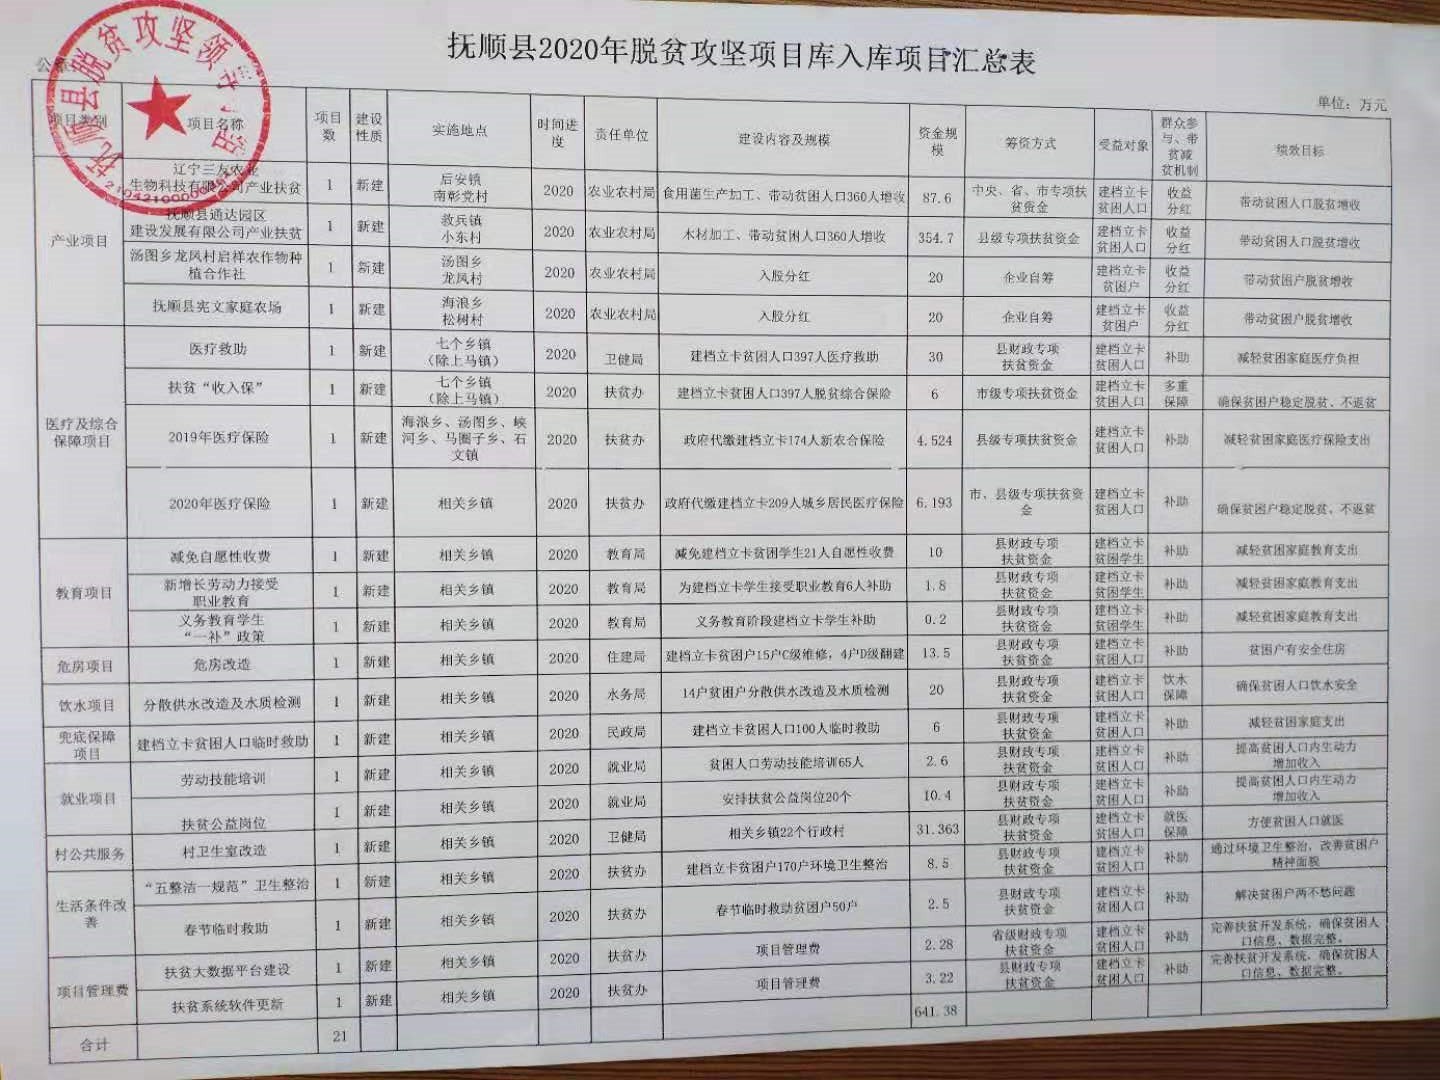 抚顺县2020年脱贫攻坚项目库入库项目汇总表
抚顺县脱贫攻坚领导小组
单位：万元
项目类别 项目名称 项目数 建设性质 实施地点 时间进度 责任单位 建设内容及规模 资金规模 筹资方式 受益对象 群众参与、带贫减贫机制 绩效目标
产业项目 辽宁三友农业生物科技有限公司产业扶贫 1 新建 后安镇南彰党村 2020 农业农村局 食用菌生产加工、带动贫困人口360人增收 87.6 中央、省、市专项扶贫资金 建档立卡贫困人口 收益分红 带动贫困人口脱贫增收
抚顺县通达园区建设发展有限公司产业扶贫 1 新建 救兵镇小东村 2020 农业农村局 木材加工、带动贫困人口360人增收 354.7 县级专项扶贫资金 建档立卡贫困人口 收益分红 带动贫困人口脱贫增收
汤图乡龙凤村启祥农作物种植合作社 1 新建 汤图乡龙凤村 2020 农业农村局 入股分红 20 企业自筹 建档立卡贫困户 收益分红 带动贫困户脱贫增收
抚顺县宪文家庭农场 1 新建 海浪乡松树村 2020 农业农村局 入股分红 20 企业自筹 建档立卡贫困户 收益分红 带动贫困户脱贫增收
医疗及综合保障项目 医疗救助 1 新建 七个乡镇（除上马镇） 2020 卫健局 建档立卡贫困人口397人医疗救助 30 县财政专项扶贫资金 建档立卡贫困人口 补助 减轻贫困家庭医疗负担
扶贫“收入保” 1 新建 七个乡镇（除上马镇） 2020 扶贫办 建档立卡贫困人口397人脱贫综合保险 6 市级专项扶贫资金 建档立卡贫困人口 多重保障 确保贫困户稳定脱贫、不返贫
2019年医疗保险 1 新建 海浪乡、汤图乡、峡河乡、马圈子乡、石文镇 2020 扶贫办 政府代缴建档立卡174人新农合保险 4.524 县级专项扶贫资金 建档立卡贫困人口 补助 减轻贫困家庭医疗保险支出
2020年医疗保险 1 新建 相关乡镇 2020 扶贫办 政府代缴建档立卡209人城乡居民医疗保险 6.193 市、县级专项扶贫资金 建档立卡贫困人口 补助 确保贫困户稳定脱贫、不返贫
教育项目 减免自愿性收费 1 新建 相关乡镇 2020 教育局 减免建档立卡贫困学生21人自愿性收费 10 县财政专项扶贫资金 建档立卡贫困学生 补助 减轻贫困家庭教育支出
新增长劳动力接受职业教育 1 新建 相关乡镇 2020 教育局 为建档立卡学生接受职业教育6人补助 1.8 县财政专项扶贫资金 建档立卡贫困学生 补助 减轻贫困家庭教育支出
义务教育学生“一补”政策 1 新建 相关乡镇 2020 教育局 义务教育阶段建档立卡学生补助 0.2 县财政专项扶贫资金 建档立卡贫困学生 补助 减轻贫困家庭教育支出
危房项目 危房改造 1 新建 相关乡镇 2020 住建局 建档立卡贫困户15户C级维修，4户D级翻建 13.5 县财政专项扶贫资金 建档立卡贫困人口 补助 贫困户有安全住房
饮水项目 分散供水改造及水质检测 1 新建 相关乡镇 2020 水务局 14户贫困户分散供水改造及水质检测 20 县财政专项扶贫资金 建档立卡贫困人口 饮水保障 确保贫困人口饮水安全
兜底保障项目 建档立卡贫困人口临时救助 1 新建 相关乡镇 2020 民政局 建档立卡贫困人口100人临时救助 6 县财政专项扶贫资金 建档立卡贫困人口 补助 减轻贫困家庭支出
就业项目 劳动技能培训 1 新建 相关乡镇 2020 就业局 贫困人口劳动技能培训65人 2.6 县财政专项扶贫资金 建档立卡贫困人口 补助 提高贫困人口内生动力增加收入
扶贫公益岗位 1 新建 相关乡镇 2020 就业局 安持扶贫公益岗位20个 10.4 县财政专项扶贫资金 建档立卡贫困人口 补助 提高贫困人口内生动力增加收入
村公共服务 村卫生室改造 1 新建 相关乡镇 2020 卫健局 相关乡镇22个行政村 31.363 县财政专项扶贫资金 建档立卡贫困人口 就医保障 方便贫困人口就医
生活条件改善 “五整洁一规范”卫生整治 1 新建 相关乡镇 2020 扶贫办 建档立卡贫困户170户环境卫生整治 8.5 县财政专项扶贫资金 建档立卡贫困人口 补助 通过环境卫生整治，改善贫困户精神面貌
春节临时救助 1 新建 相关乡镇 2020 扶贫办 春节临时救助贫困户50户 2.5 县财政专项扶贫资金 建档立卡贫困人口 补助 解决贫困户两不愁问题
项目管理费 扶贫大数据平台建设 1 新建 相关乡镇 2020 扶贫办 项目管理费 2.28 省级财政专项扶贫资金 建档立卡贫困人口 补助 完善扶贫开发系统，确保贫困人口信息、数据完整。
扶贫系统软件更新 1 新建 相关乡镇 2020 扶贫办 项目管理费 3.22 县财政专项扶贫资金 建档立卡贫困人口 补助 完善扶贫开发系统，确保贫困人口信息、数据完整。
合计 21 641.38